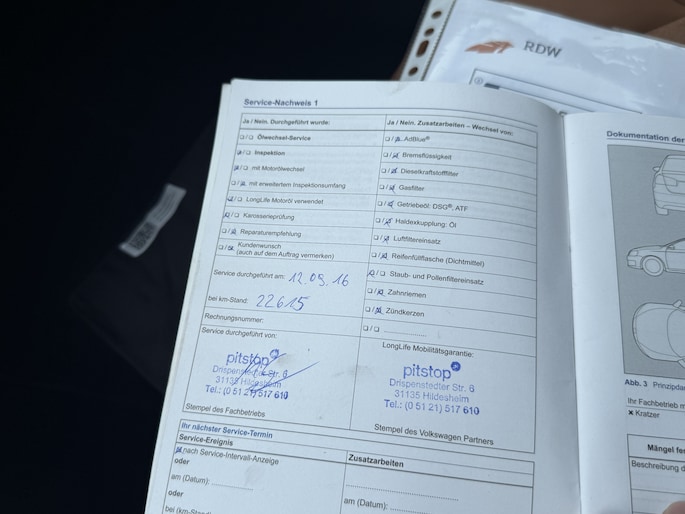 RDW
Service-Nachweis 1
Ja / Nein. Durchgeführt wurde:
Ölwechsel-Service
Inspektion
mit Motorölwechsel
mit erweitertem Inspektionsumfang
LongLife Motoröl verwendet
Karosserieprüfung
Reparaturempfehlung
Kundenwunsch
(auch auf dem Auftrag vermerken)
Service durchgeführt am: 12.05.16
bei km-Stand: 22615
Rechnungsnummer:
Service durchgeführt von:
pitstop
Drispenstedter Str. 6
31135 Hildesheim
Tel.: (0 51 21) 517 610
Stempel des Fachbetriebs
Ja / Nein. Zusatzarbeiten – Wechsel von:
AdBlue®
Bremsflüssigkeit
Dieselkraftstofffilter
Gasfilter
Getriebeöl: DSG®, ATF
Haldexkupplung: Öl
Luftfiltereinsatz
Reifenfüllflasche (Dichtmittel)
Staub- und Pollenfiltereinsatz
Zahnriemen
Zündkerzen
LongLife Mobilitätsgarantie:
pitstop
Drispenstedter Str. 6
31135 Hildesheim
Tel.: (0 51 21) 517 610
Stempel des Volkswagen Partners
Ihr nächster Service-Termin
Service-Ereignis
nach Service-Intervall-Anzeige
oder
am (Datum):
oder
bei (km-Stand):
Zusatzarbeiten
am (Datum):
Dokumentation der
Abb. 3 Prinzipda
Ihr Fachbetrieb m
× Kratzer
Mängel fe
Beschreibung d